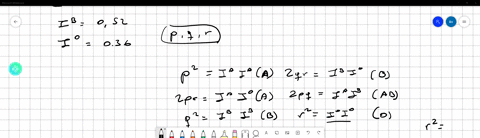 I^B = 0,52
I^O = 0.36
p, q, r
p² = I^A I^A (A) 2qr = I^B I^O (B)
2pr = I^A I^O (A) 2pq = I^A I^B (AB)
q² = I^B I^B (B) r² = I^O I^O (O)
r² =